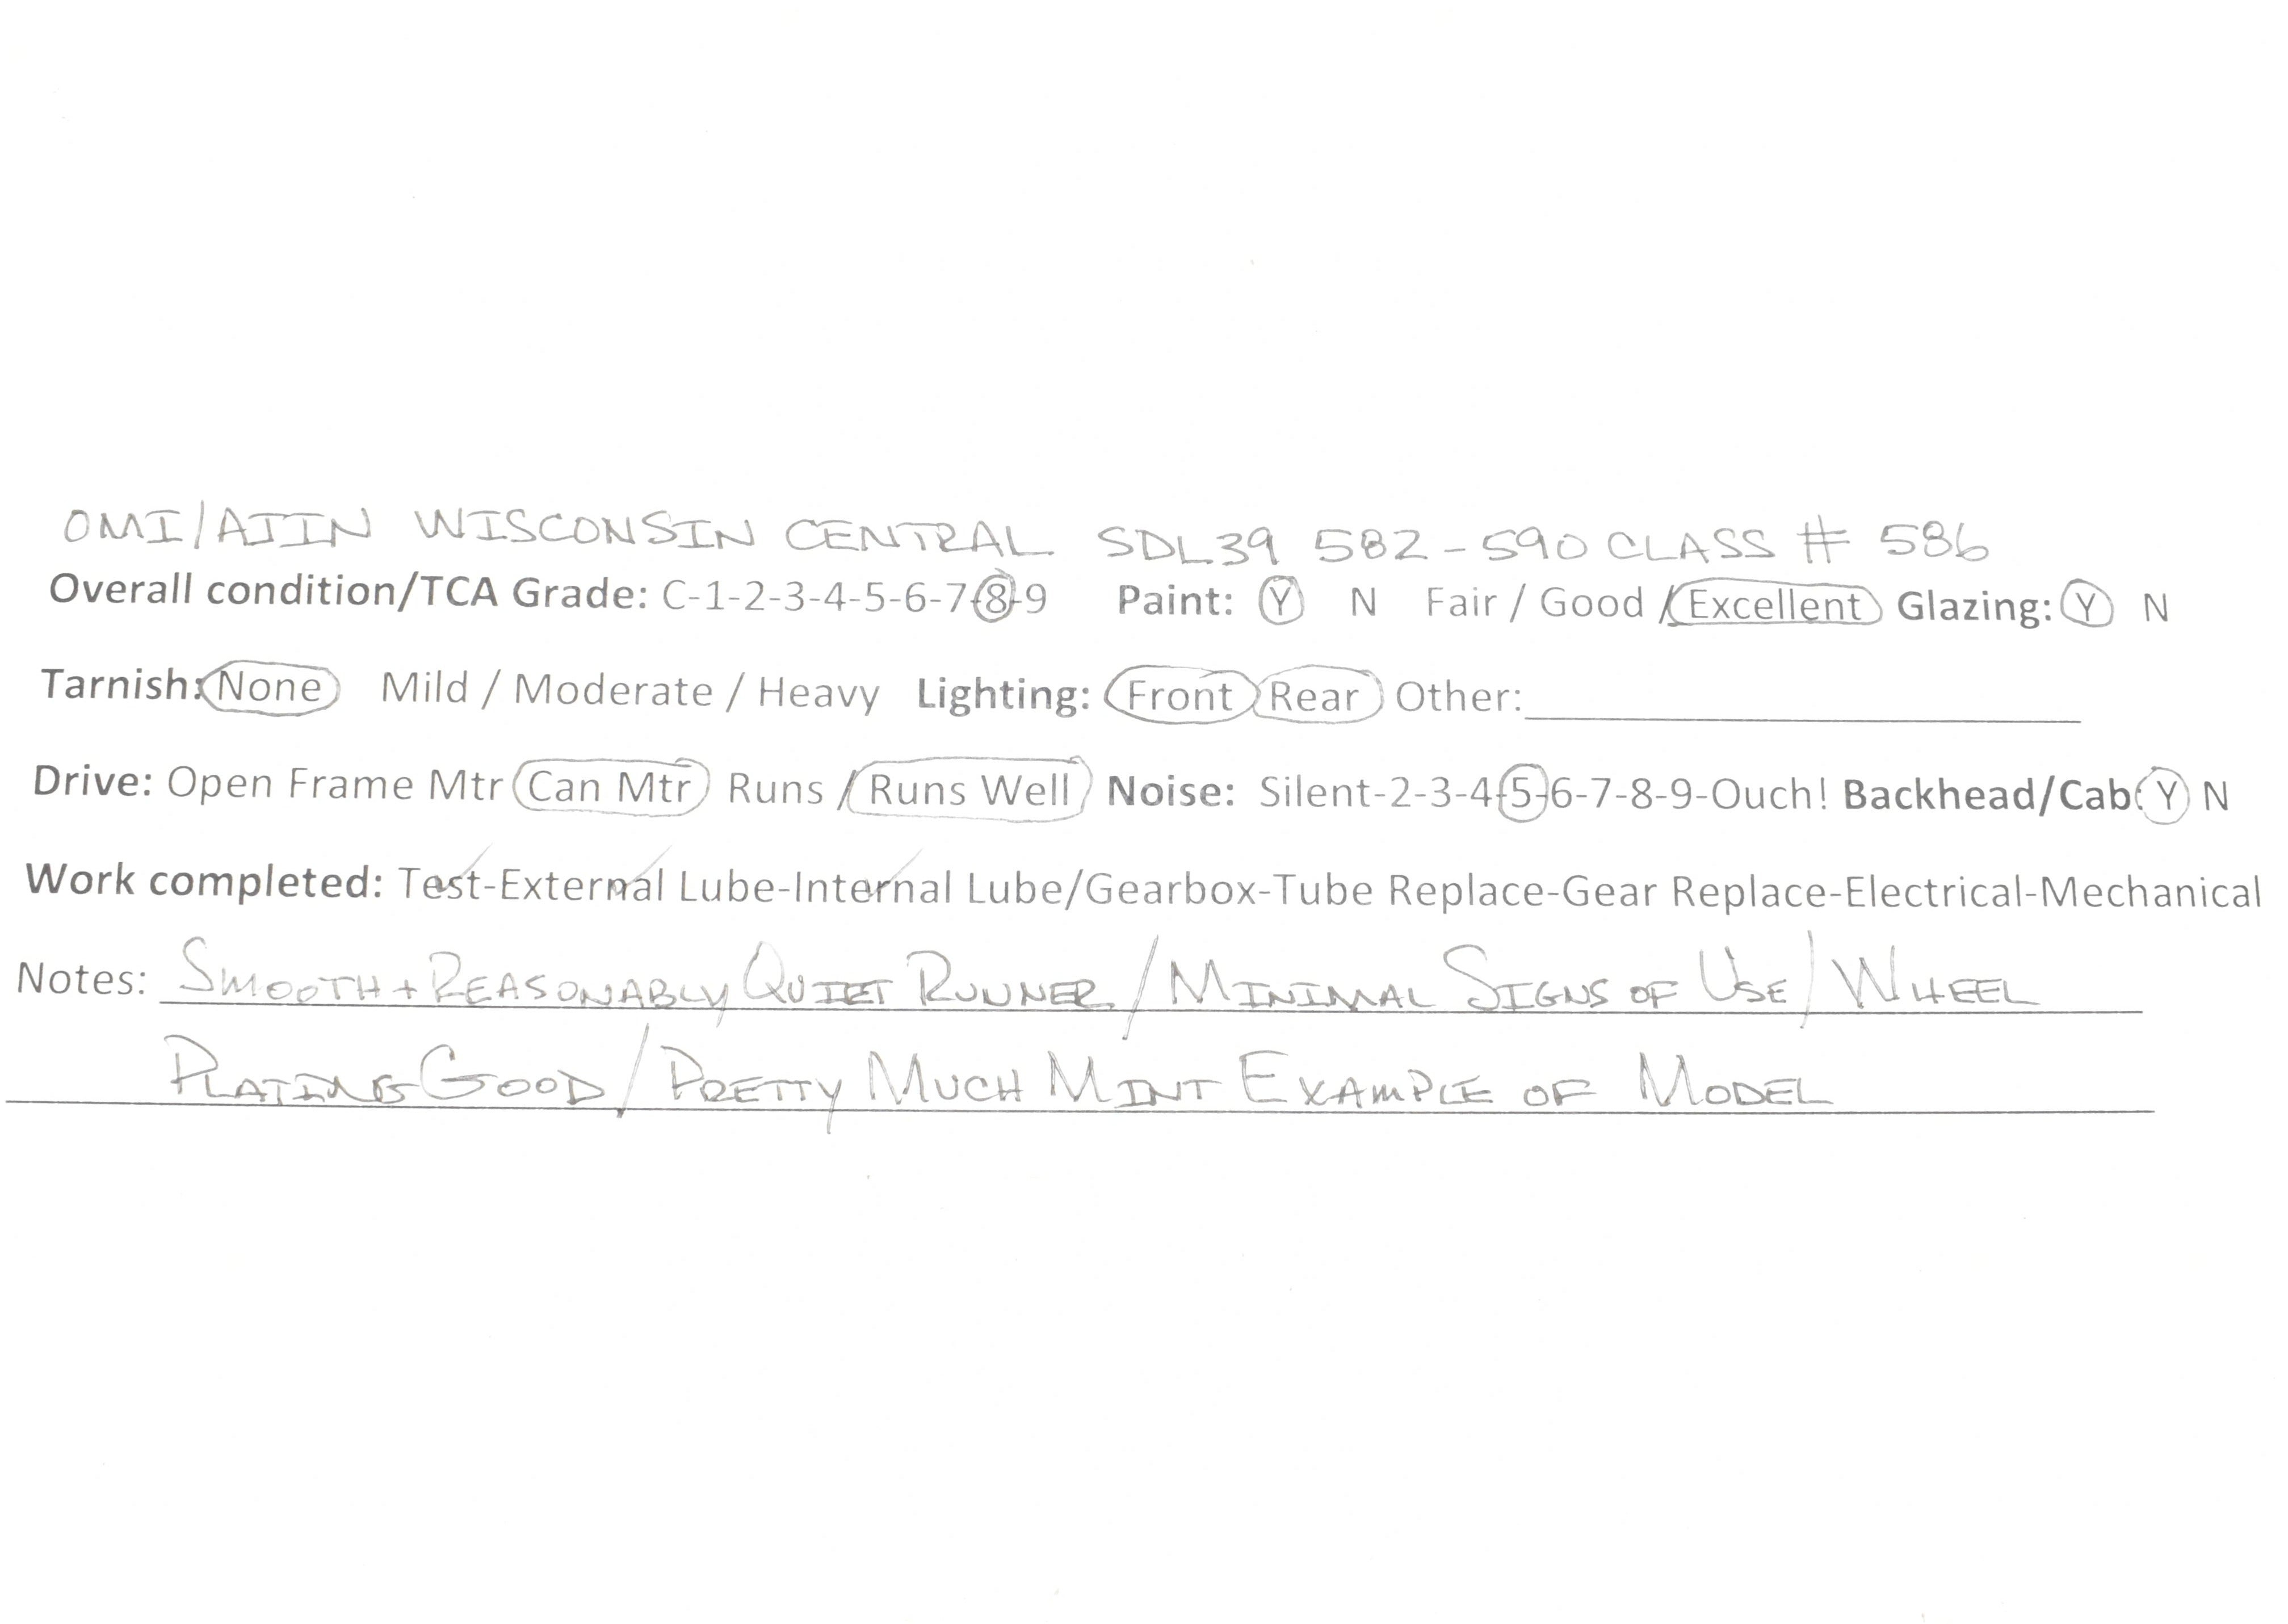 OMI/AJIN WISCONSIN CENTRAL SDL39 582-590 CLASS # 586
Overall condition/TCA Grade: C-1-2-3-4-5-6-7-8-9 Paint: Y N Fair / Good / Excellent Glazing: Y N
Tarnish: None Mild / Moderate / Heavy Lighting: Front Rear Other:
Drive: Open Frame Mtr Can Mtr Runs / Runs Well Noise: Silent-2-3-4-5-6-7-8-9-Ouch! Backhead/Cab: Y N
Work completed: Test-External Lube-Internal Lube/Gearbox-Tube Replace-Gear Replace-Electrical-Mechanical
Notes: SMOOTH + REASONABLY QUIET RUNNER / MINIMAL SIGNS OF USE / WHEEL
PLATING GOOD / PRETTY MUCH MINT EXAMPLE OF MODEL